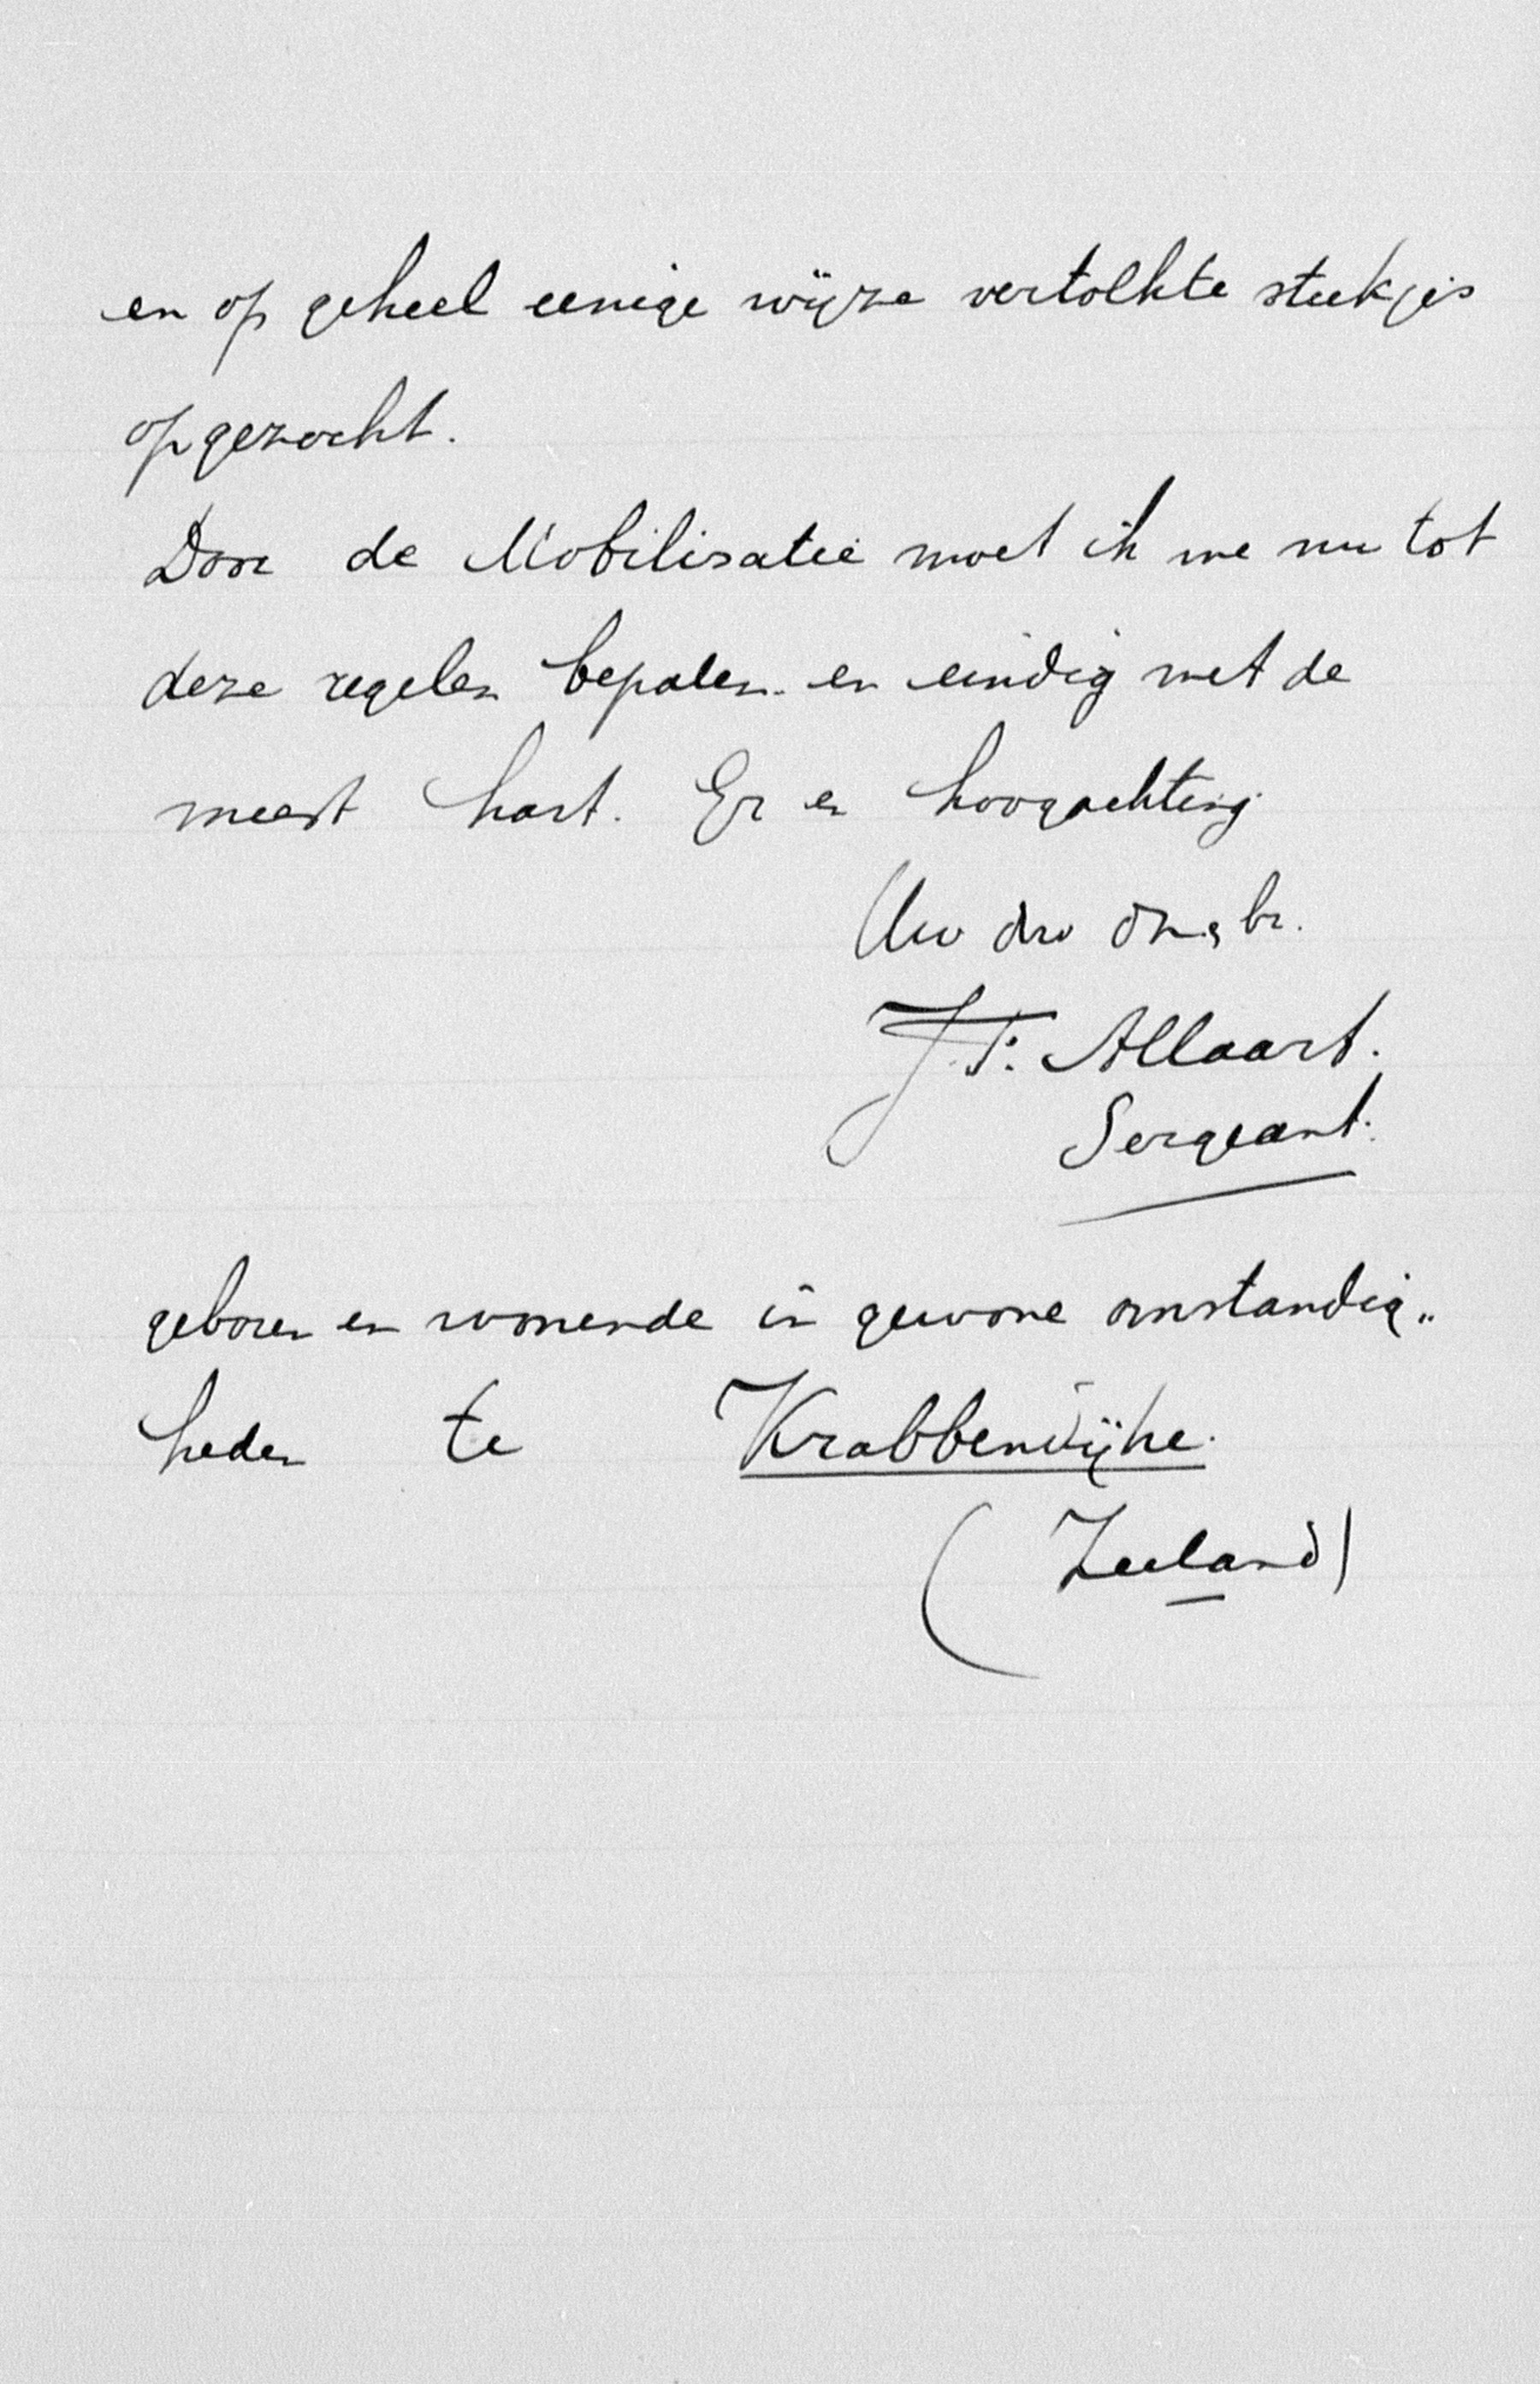 en op geheel eenige wijze vertolkte stukjes
opgezocht.
Door de Mobilisatie moet ik me nu tot
deze regelen bepalen en eindig met de
meest hart. Gr en hoogachting
Uw dw dn. br.
J. F. Allaart.
Sergeant.
geboren en wonende in gewone omstandig„
heden te Krabbendijke.
(Zeeland)